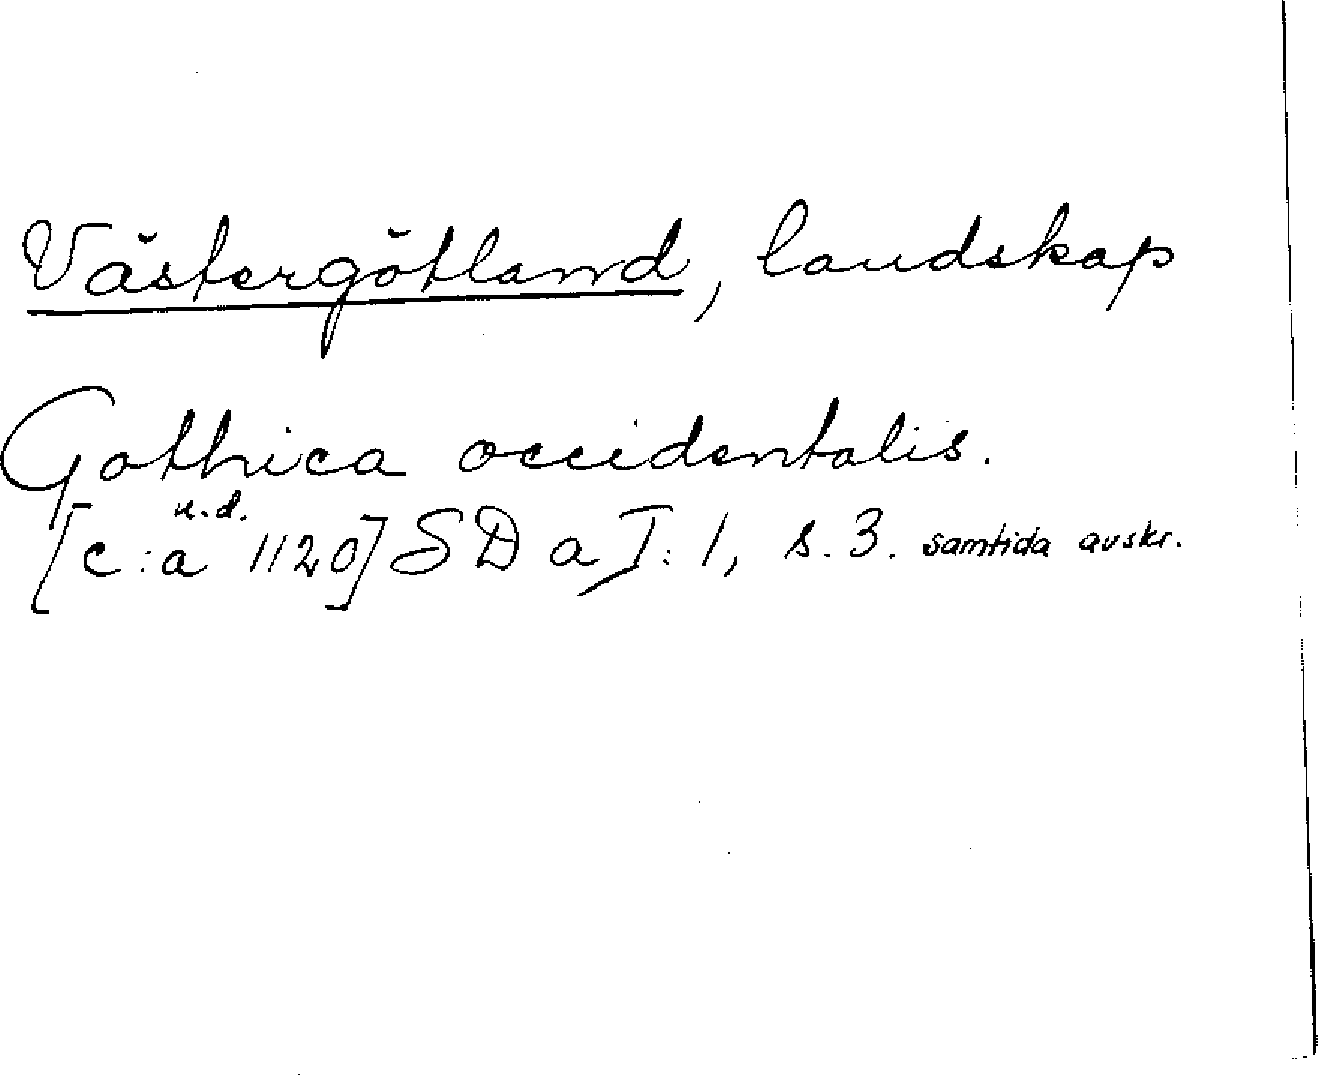 Västergötland, landskap
Gothica occidentalis.
u.d.
[c:a 1120] SD a I:1, s. 3. samtida avskr.